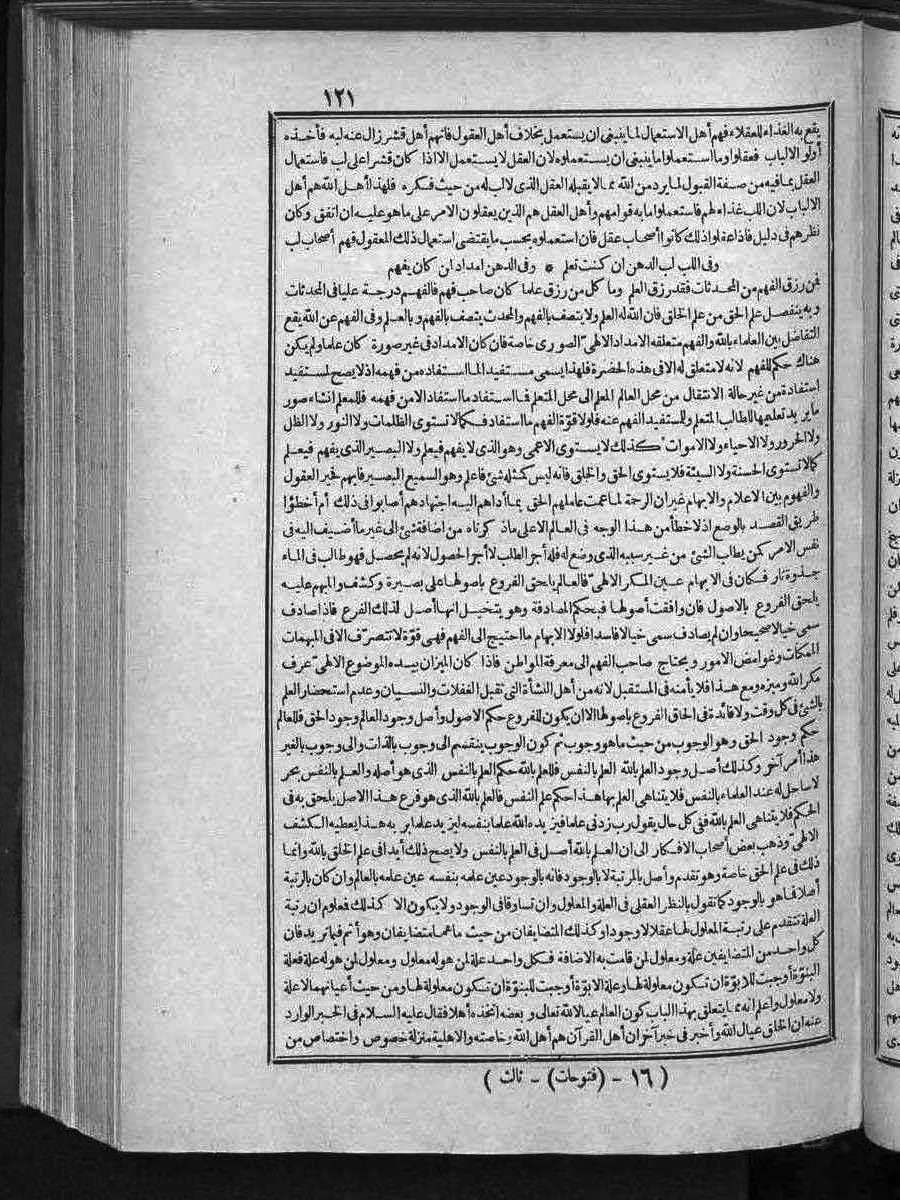 ١٢١
يقع به الغذاء للعقلاء فهم أهل الاستعمال لما ينبغى ان يستعمل بخلاف أهل العقول فانهم أهل قشر زال عنه لبه فأخذه
أولو الالباب فعقلوا وما استعملوا ما ينبغى ان يستعملوه لان العقل لا يستعمل الا اذا كان قشرا على لب فاستعمال
العقل بما فيه من صفة القبول لما يرد من الله مما لا يقبله العقل الذى لا لب له من حيث فكره فلهذا أهل الله هم أهل
الالباب لان اللب غذاء لهم فاستعملوا ما به قوامهم وأهل العقل هم الذين يعقلون الامر على ما هو عليه ان اتفق وكان
نظرهم فى دليل فاذا عقلوا ذلك كانوا أصحاب عقل فان استعملوه بحسب ما يقتضى استعمال ذلك المعقول فهم أصحاب لب
وفى اللب لب الدهن ان كنت تعلم * وفى الدهن امداد لمن كان يفهم
فمن رزق الفهم من المحدثات فقد رزق العلم وما كل من رزق علما كان صاحب فهم فالفهم درجة عليا فى المحدثات
وبه ينفصل علم الحق من علم الخلق فان الله له العلم ولا يتصف بالفهم والمحدث يتصف بالفهم وبالعلم وفى الفهم عن الله يقع
التفاضل بين العلماء بالله والفهم متعلقه الامداد الالهىّ الصورى خاصة فان كان الامداد فى غير صورة كان علما ولم يكن
هناك حكم للفهم لانه لا متعلق له الا فى هذه الحضرة فلهذا يسمى مستفيدا لما استفاده من فهمه اذ لا يصح لمستفيد
استفادة من غير حالة الانتقال من محل العالم المعلم الى محل المتعلم فما استفاد ما استفاد الا من فهمه فللمعلم انشاء صور
ما يريد تعليمها للطالب المتعلم وللمستفيد الفهم عنه فلولا قوّة الفهم ما استفاد فكما لا تستوى الظلمات ولا النور ولا الظل
ولا الحرور ولا الاحياء ولا الاموات كذلك لا يستوى الاعمى وهو الذى لا يفهم فيعلم ولا البصير الذى يفهم فيعلم
كما لا تستوى الحسنة ولا السيئة فلا يستوى الحق والخلق فانه ليس كمثله شئ فاعلم وهو السميع البصير فابهم فحير العقول
والفهوم بين الاعلام والابهام غير ان الرحة لما عمت عاملهم الحق بما أداهم اليه اجتهادهم أصابوا فى ذلك أم أخطؤا
طريق القصد بالوضع اذ لا خطأ من هذا الوجه فى العالم الا على ما ذكرناه من اضافة شئ الى غير ما أضيف اليه فى
نفس الامر كمن يطلب الشئ من غير سببه الذى وضع له فله أجر الطلب لا أجر الحصول لانه لم يحصل فهو طالب فى الماء
جذوة نار فكان فى الابهام عين المكر الالهىّ فالعالم يلحق الفروع باصولها على بصيرة وكشف والمبهم عليه
يلحق الفروع بالاصول فان وافقت أصولها فبحكم المصادفة وهو يتخيل انها أصل لذلك الفرع فاذا صادف
سمى خيالا صحيحا وان لم يصادف سمى خيالا فاسدا فلولا الابهام ما احتيج الى الفهم فهى قوّة لا تتصرّف الا فى المبهمات
الممكنات وغوامض الامور ويحتاج صاحب الفهم الى معرفة المواطن فاذا كان الميزان بيده الموضوع الالهىّ عرف
مكر الله وميزه ومع هذا فلا يأمنه فى المستقبل لانه من أهل النشأة التى تقبل الغفلات والنسيان وعدم استحضار العلم
بالشئ فى كل وقت ولا فائدة فى الحاق الفروع باصولها الا ان يكون للفروع حكم الاصول وأصل وجود العالم وجود الحق فللعالم
حكم وجود الحق وهو الوجوب من حيث ما هو وجوب ثم كون الوجوب ينقسم الى وجوب بالذات والى وجوب بالغير
هذا أمر آخر وكذلك أصل وجود العلم بالله العلم بالنفس فللعلم بالله حكم العلم بالنفس الذى هو أصله والعلم بالنفس بحر
لا ساحل له عند العلماء بالنفس فلا يتناهى العلم بها هذا حكم علم النفس فالعلم بالله الذى هو فرع هذا الاصل يلحق به فى
الحكم فلا يتناهى العلم بالله ففى كل حال يقول رب زدنى علما فيزيده الله علما بنفسه ليزيد علما بربه هذا يعطيه الكشف
الالهىّ وذهب بعض أصحاب الافكار الى ان العلم بالله أصل فى العلم بالنفس ولا يصح ذلك أبدا فى علم الخلق بالله وانما
ذلك فى علم الحق خاصة وهو تقدم وأصل بالمرتبة لا بالوجود فانه بالوجود عين علمه بنفسه عين علمه بالعالم وان كان بالرتبة
أصلا فما هو بالوجود كما تقول بالنظر العقلى فى العلة والمعلول وان تساوقا فى الوجود ولا يكون الا كذلك فمعلوم ان رتبة
العلة تتقدم على رتبة المعلول لها عقلا لا وجودا وكذلك المتضايفان من حيث ما هما متضايفان وهو أتم فيما تريد فان
كل واحد من المتضايفين علة ومعلول لمن قامت به الاضافة فكل واحد علة لمن هو له معلول ومعلول لمن هو له علة فعلة
البنوّة أوجبت للابوّة ان تكون معلولة لها وعلة الابوّة أوجبت للبنوّة ان تكون معلولة لها ومن حيث أعيانهما لا علة
ولا معلول واعلم انه مما يتعلق بهذا الباب كون العالم عيالا لله تعالى وبعضه اتخذه أهلا فقال عليه السلام فى الخبر الوارد
عنه ان الخلق عيال الله وأخبر فى خبر آخر ان أهل القرآن هم أهل الله وخاصته والاهلية منزلة خصوص واختصاص من
( ١٦ - (فتوحات) - ثالث )